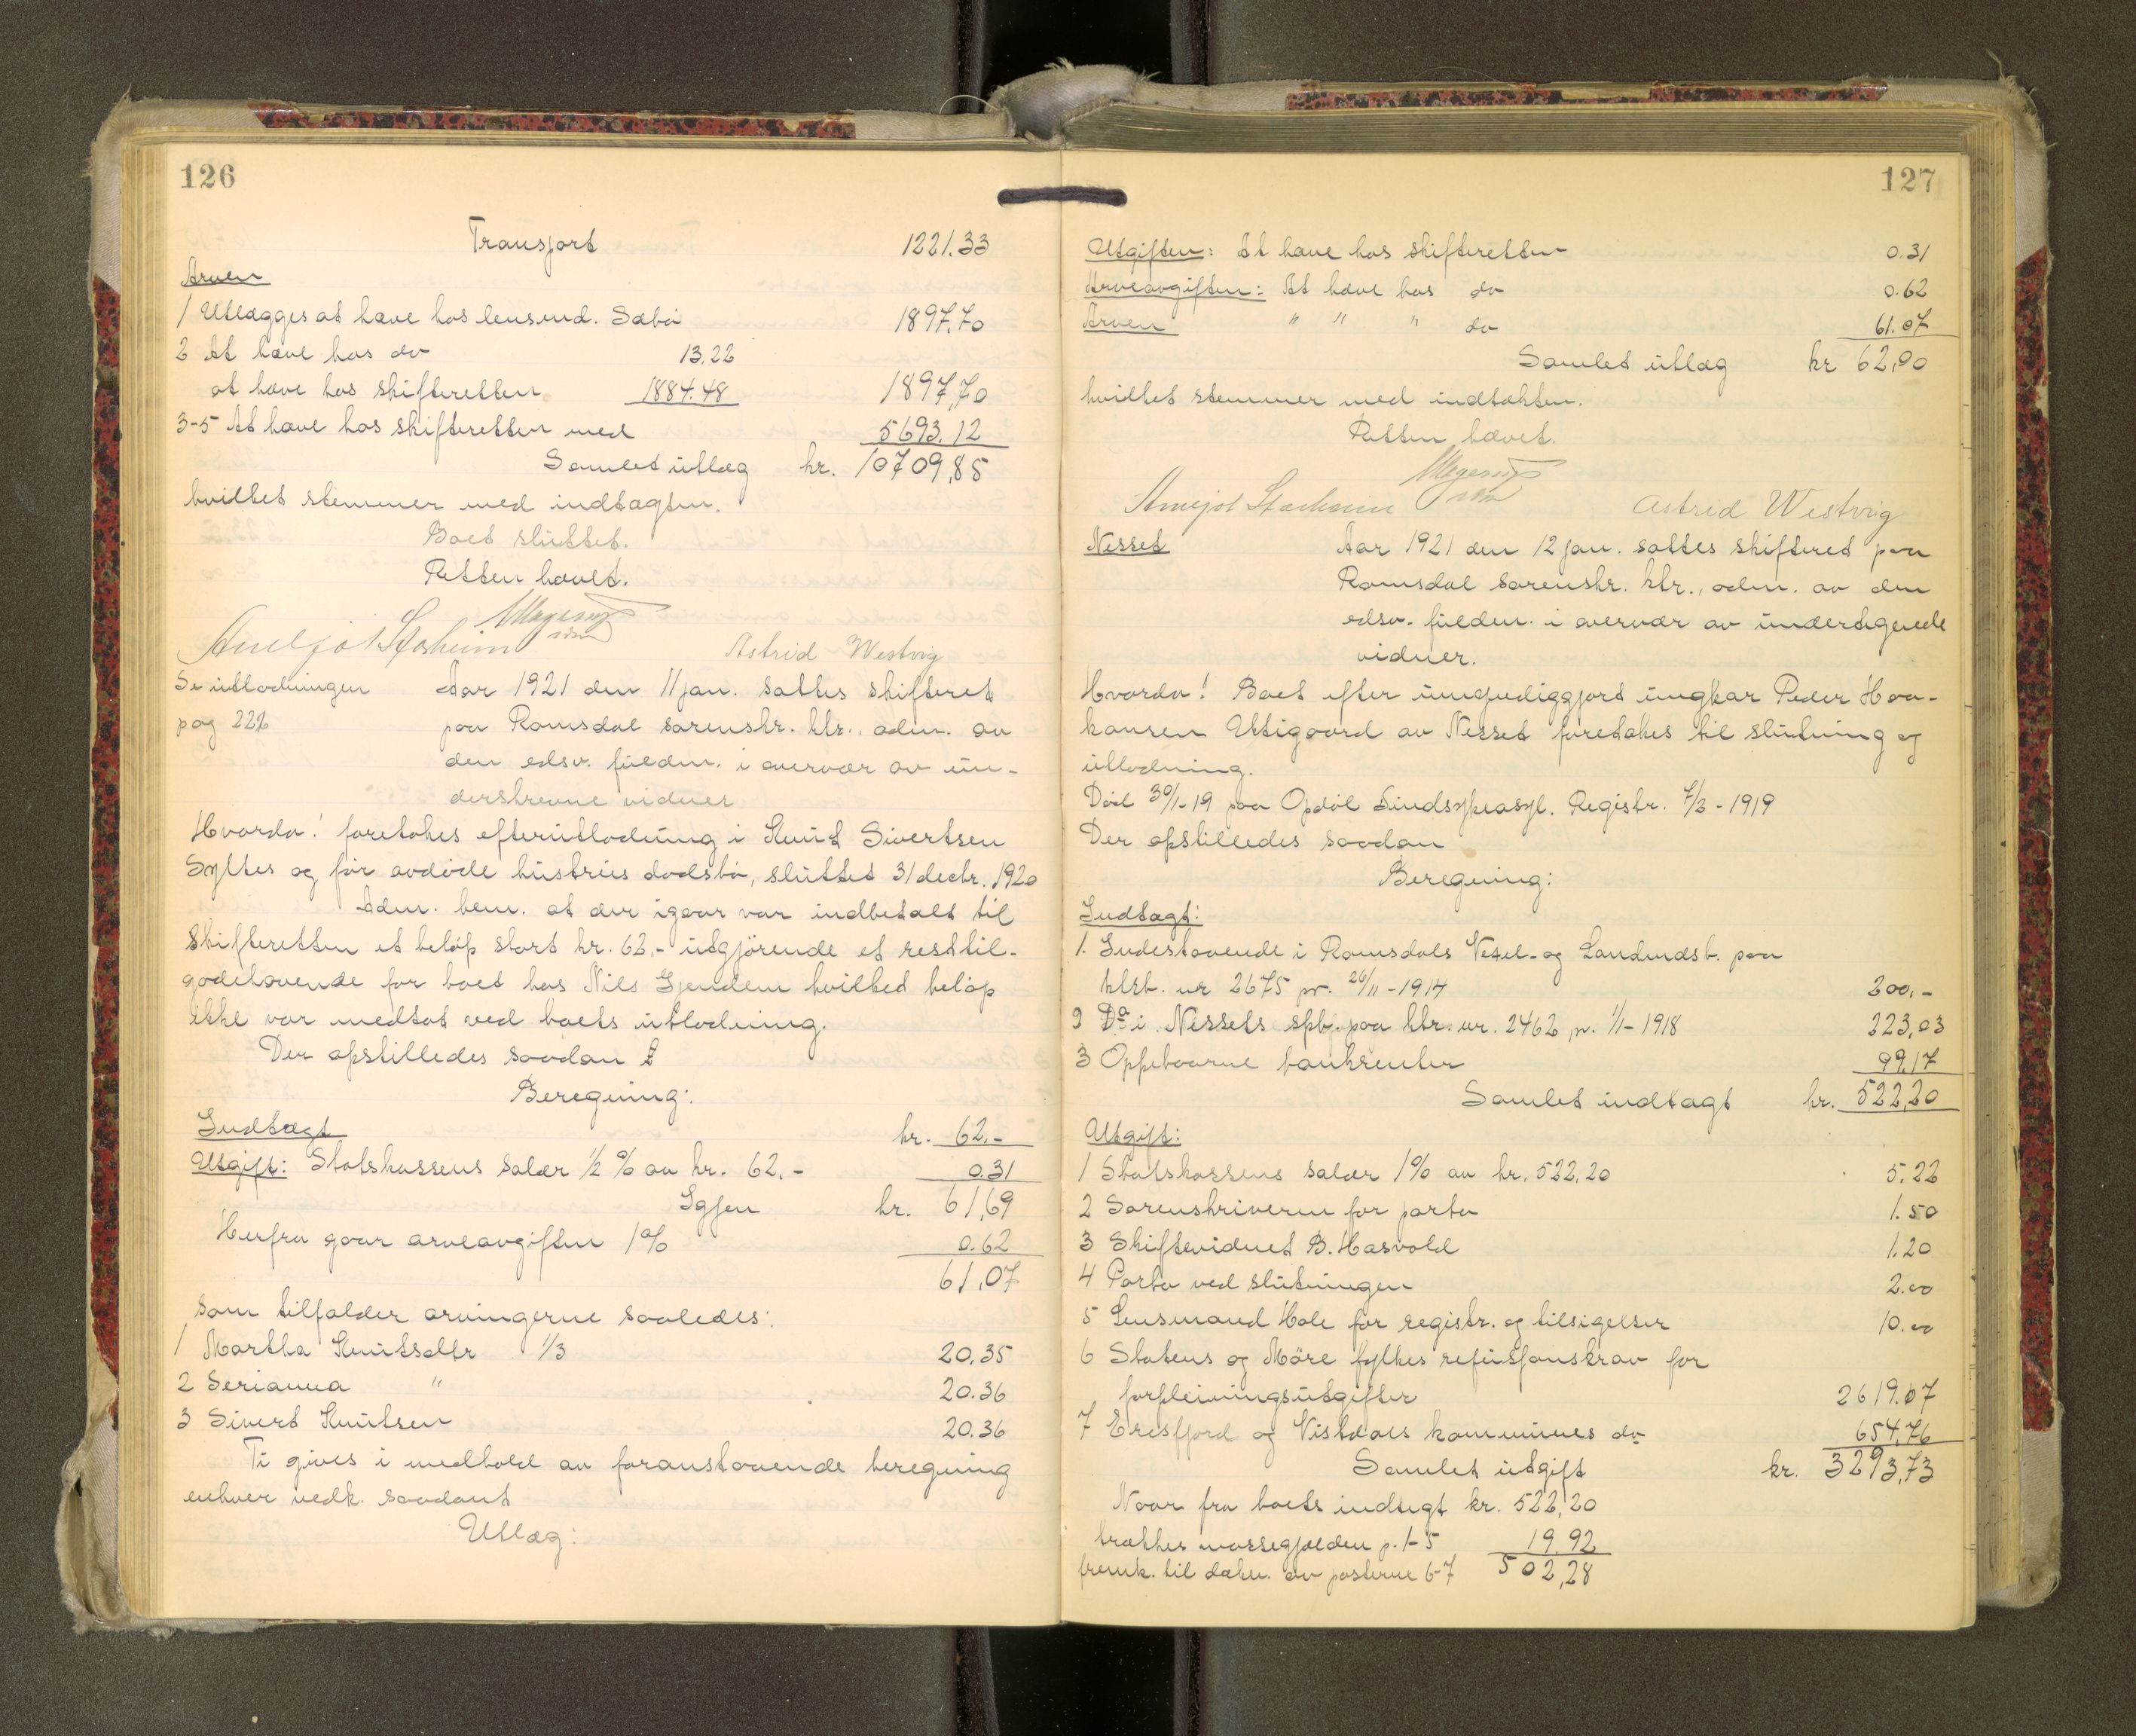 126
Transport 1221.33
Arven
1 Utlægges at hæve hos lensmd. Sæbø 1897,70
2 At hæve hos do 13.22
at hæve hos skifteretten 1884.48 1897,70
3-5 At hæve hos skifteretten med 5693.12
Samlet utlæg kr. 10709,85
hvilket stemmer med indtægten.
Boet sluttet.
Retten hævet.
Astrid Westvig
Se utlodningen
pag 226
Aar 1921 den 11 jan. sattes skifteret
paa Romsdal sorenskr. ktr., adm. av
den edsv. fuldm. i overvær av un-
derskrevne vidner
Hvorda! foretokes efterutlodning i Knut Sivertsen
Syltes og før avdøde hustrus dødsbo, sluttet 31 decbr. 1920
Adm. bem. at der igaar var indbetalt til
Skifteretten et beløp stort kr. 62,- utgjørende et resttil-
godehavende for boet hos Nils Gjendem hvilket beløp
ikke var medtat ved boets utlodning.
Der opstilledes saadan
Beregning:
Indtægt kr. 62.-
Utgift: Statskassens salær 1/2 % av kr. 62.- 0.31
Igjen kr. 61,69
Herfra gaar arveavgiften 1 % 0.62
61,07
som tilfalder arvingerne saaledes:
1 Martha Knutsdtr 1/3 20.35
2 Serianna " 20.36
3 Sivert Knutsen 20.36
Ti gives i medhold av foranstaaende beregning
enhver vedk. saadant
Utlæg:
127
Utgiften: At hæve hos skifteretten 0.31
Arveavgiften: At hæve hos do 0.62
Arven " " " do 61.07
Samlet utlæg kr 62,00
hvilket stemmer med indtækten.
Retten hævet.
Astrid Westvig
Nesset
Aar 1921 den 12 jan. sattes skifteret paa
Romsdal sorenskr. ktr., adm. av den
edsv. fuldm. i overvær av undertegnede
vidner.
Hvorda! Boet efter umyndiggjort ungkar Peder Haa-
kansen Utigaard av Nesset foretokes til slutning og
utlodning.
Død 30/1-19 paa Opdøl Sindsykeasyl. Registr. 7/3-1919
Der opstilledes saadan
Beregning:
Indtægt:
1. Indestaaende i Romsdals Vexel- og Landmdsb. paa
ktrb. nr 2675 pr. 26/11-1914 200,-
2 Do i Nessets spb. paa ktr. nr. 2462 pr. 1/1-1918 223,03
3 Oppebaarne bankrenter 99,17
Samlet indtægt kr. 522,20
Utgift:
1 Statskassens salær 1% av kr. 522.20 5.22
2 Sorenskriveren for porto 1.50
3 Skiftevidnet B. Hasvold 1.20
4 Porto ved slutningen 2.00
5 Lensmand Hole for registr. og tilsigelser 10.00
6 Statens og Møre fylkes refusjonskrav for
forpleiningsutgifter 2619.07
7 Eresfjord og Vistdals kommunes do 654,76
Samlet utgift kr. 3293,73
Naar fra boets indtegt kr. 522,20
trækkes massegjælden p. 1-5 19.92
fremk. til dækn. av posterne 6-7 502,28